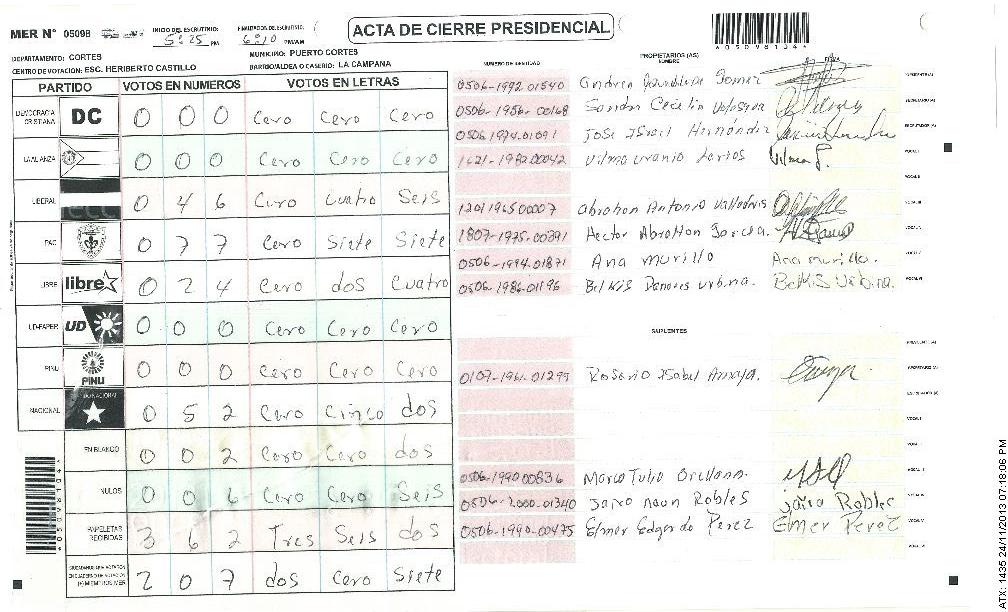 MER N° 05098
INICIO DEL ESCRUTINIO: 5:25 PM
FINALIZACION DEL ESCRUTINIO: 6:10 PM/AM
ACTA DE CIERRE PRESIDENCIAL
*05098134*
DEPARTAMENTO: CORTES
MUNICIPIO: PUERTO CORTES
CENTRO DE VOTACION: ESC. HERIBERTO CASTILLO
BARRIO/ALDEA O CASERIO: LA CAMPANA
PARTIDO VOTOS EN NUMEROS VOTOS EN LETRAS
DEMOCRACIA CRISTIANA DC 0 0 0 Cero Cero Cero
LA ALANZA 0 0 0 Cero Cero Cero
LIBERAL 0 4 6 Cero Cuatro Seis
PAC 0 7 7 Cero Siete Siete
LIBRE libre 0 2 4 Cero dos Cuatro
UD-FAPER UD 0 0 0 Cero Cero Cero
PINU PINU 0 0 0 Cero Cero Cero
NACIONAL 0 5 2 Cero Cinco dos
EN BLANCO 0 0 2 Cero Cero dos
NULOS 0 0 6 Cero Cero Seis
PAPELETAS RECIBIDAS 3 6 2 Tres Seis dos
CIUDADANOS QUE VOTARON EN CUADERNO DE VOTACION (+) MIEMBROS MER 2 0 7 dos Cero Siete
NUMERO DE IDENTIDAD
PROPIETARIOS (AS)
NOMBRE
0506-1992-01540 Gomez
0506-1986-00168 Sandra Cecilia
0506-1974-01091 Jose Israel Hernandez
1621-1982-00042 Vilma
1201196500007 Abrahan Antonio
1807-1975-00391 Hector Abrahan Garcia.
0506-1994-01871 Ana Murillo Ana Murillo.
0506-1986-01196 Belkis Danores Urbina. Belkis Urbina.
SUPLENTES
0107-1961-01299 Rosario Isabel Amaya.
0506-1990-00836 Marco Tulio Orellana.
0506-2000-01340 Jairo Naun Robles Jairo Robles
0506-1990-00475 Elmer Edgardo Perez Elmer Perez
ATX: 1435 24/11/2013 07:18:06 PM